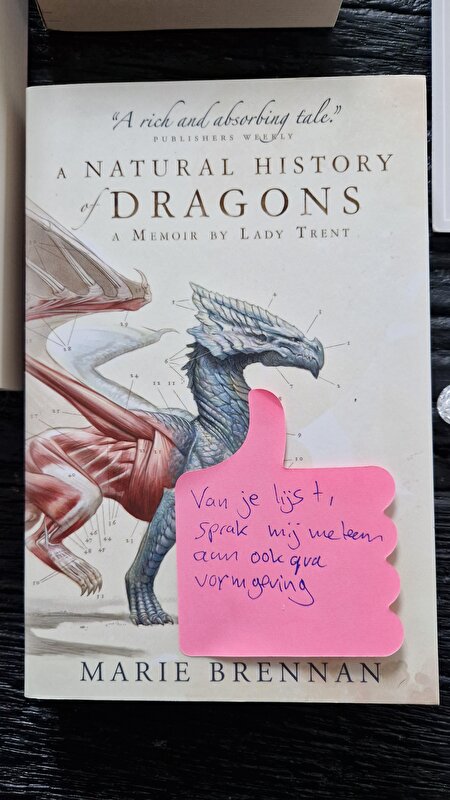 "A rich and absorbing tale."
PUBLISHERS WEEKLY
A NATURAL HISTORY
of DRAGONS
A MEMOIR BY LADY TRENT
Van je lijst,
sprak mij meteen
aan ook qua
vormgeving
MARIE BRENNAN